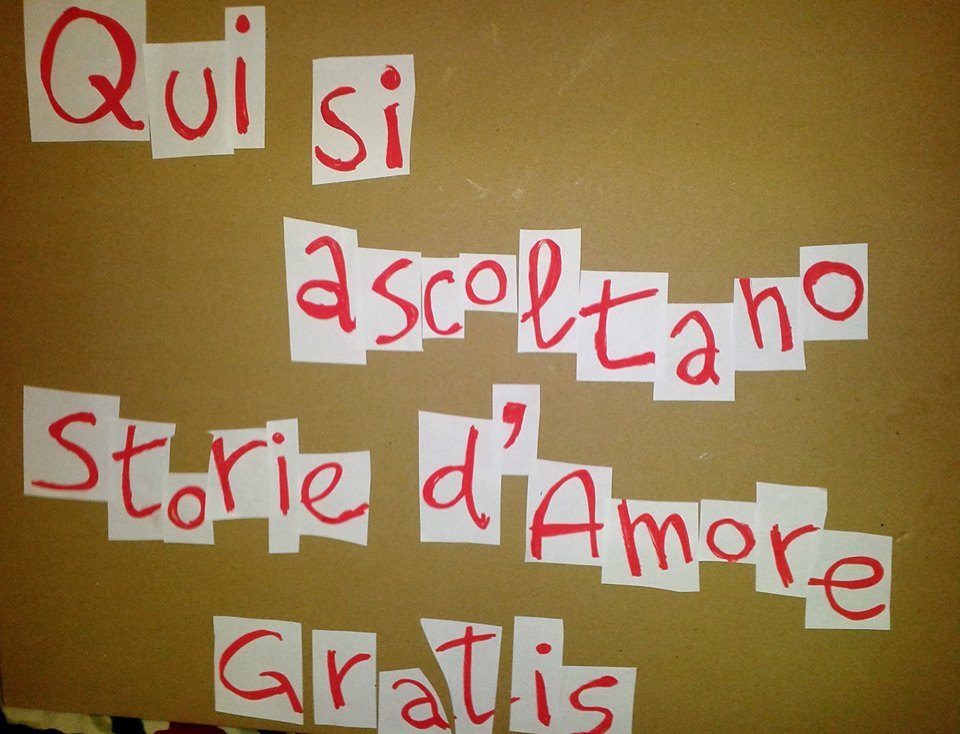 Qui si
ascoltano
Storie d'Amore
Gratis